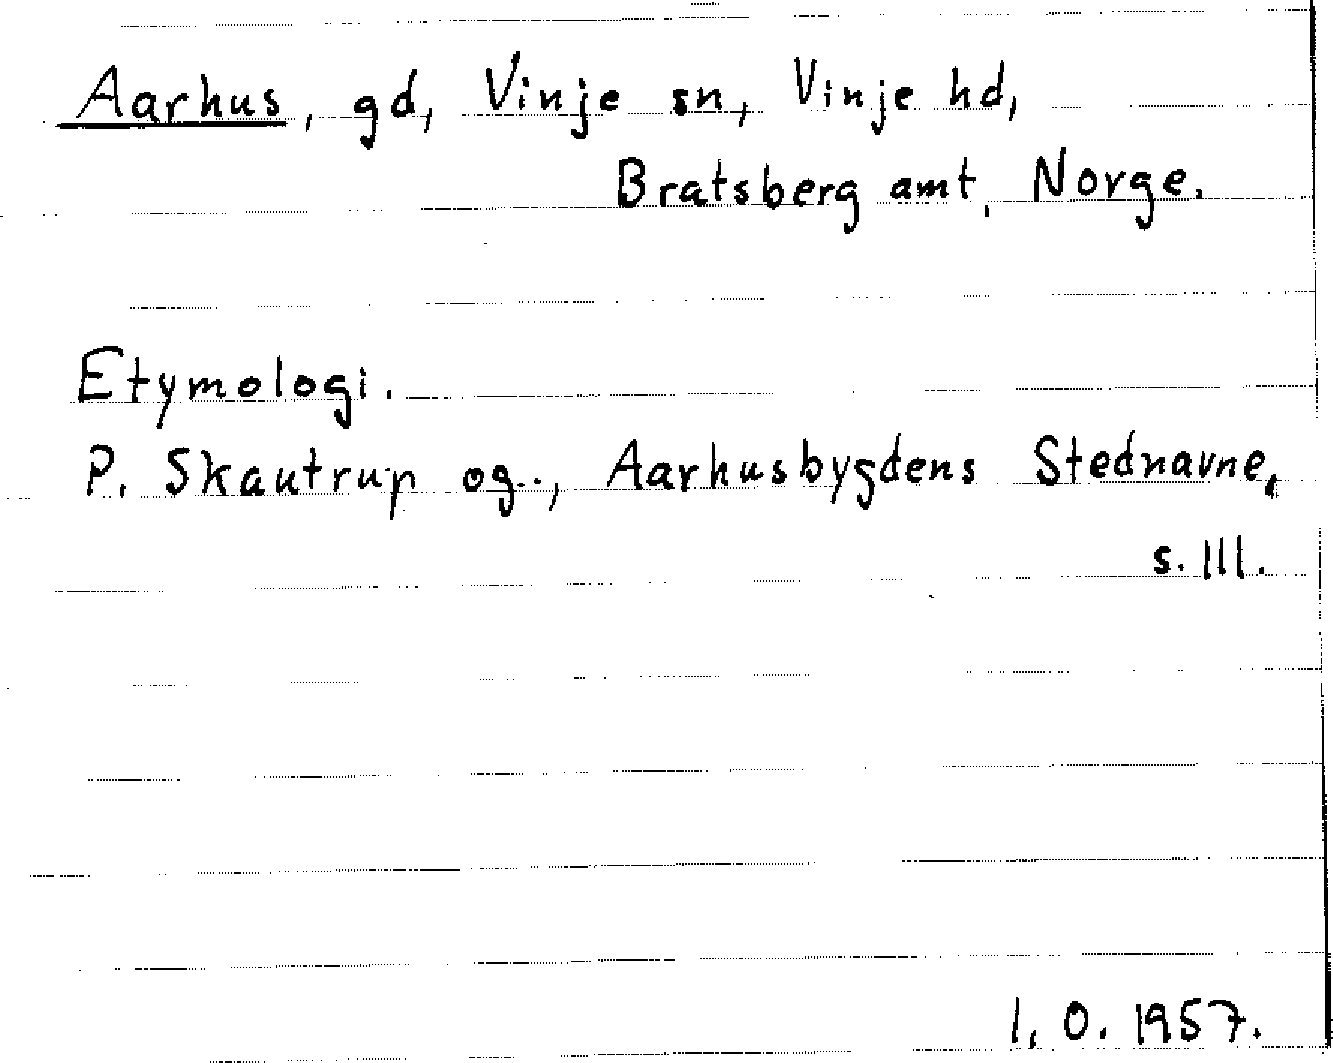 Aarhus, gd, Vinje sn, Vinje hd,
Bratsberg amt, Norge.
Etymologi.
P. Skautrup og.., Aarhusbygdens Stednavne,
s. 111.
I. O. 1957.